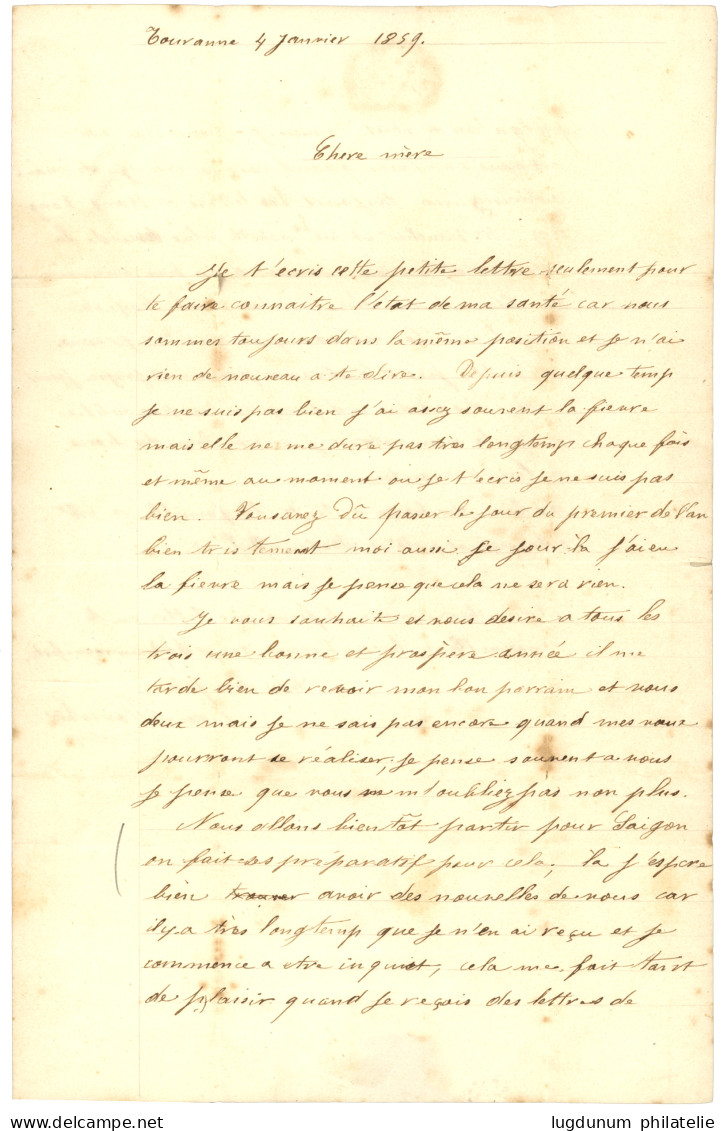 Touranne 4 Janvier 1859.
Chere mère
Je t'ecris cette petite lettre seulement pour
te faire connaitre l'état de ma santé car nous
sommes toujours dans la même position et je n'ai
rien de nouveau a te dire. Depuis quelque temp
je ne suis pas bien j'ai assez souvent la fievre
mais elle ne me dure pas tres longtemp chaque fois
et même au moment ou je t'ecris je ne suis pas
bien. Vous avez dû passer le jour du premier de l'an
bien tristement moi aussi ce jour la j'ai eu
la fievre mais je pense que cela ne sera rien.
Je vous souhaite et vous desire a tous les
trois une bonne et prospère année il me
tarde bien de revoir mon bon parrain et vous
deux mais je ne sais pas encore quand mes vœux
pourront se réaliser, je pense souvent a vous
je pense que vous m'oubliez pas non plus.
Nous allons bientôt partir pour Saigon
on fait ses préparatif pour cela, la j'espere
bien trouver avoir des nouvelles de vous car
il y a très longtemp que je n'en ai reçu et je
commence a etre inquiet, cela me fait tant
de plaisir quand je reçois des lettres de
lugdunum philatelie